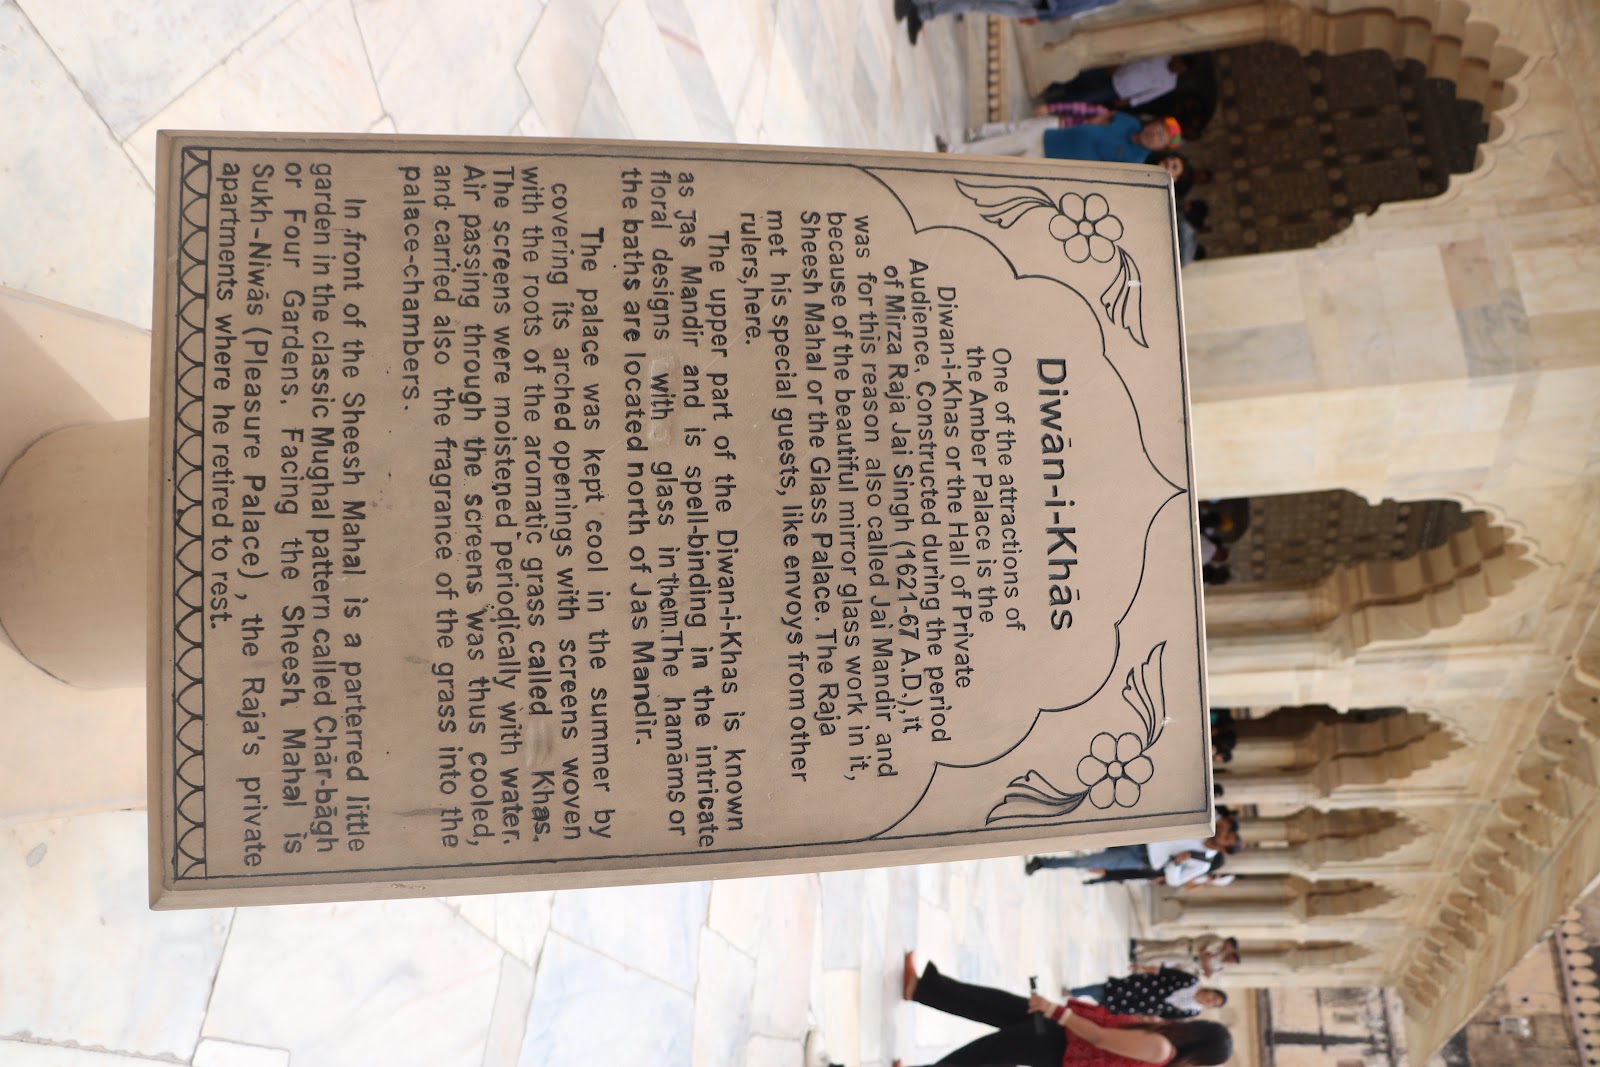 Diwān-i-Khās
One of the attractions of
the Amber Palace is the
Diwan-i-Khas or the Hall of Private
Audience. Constructed during the period
of Mirza Raja Jai Singh (1621-67 A.D.), it
was for this reason also called Jai Mandir and
because of the beautiful mirror glass work in it,
Sheesh Mahal or the Glass Palace. The Raja
met his special guests, like envoys from other
rulers, here.
The upper part of the Diwan-i-Khas is known
as Jas Mandir and is spell-binding in the intricate
floral designs with glass in them. The hamāms or
the baths are located north of Jas Mandir.
The palace was kept cool in the summer by
covering its arched openings with screens woven
with the roots of the aromatic grass called Khas.
The screens were moistened periodically with water.
Air passing through the screens was thus cooled,
and carried also the fragrance of the grass into the
palace-chambers.
In front of the Sheesh Mahal is a parterred little
garden in the classic Mughal pattern called Chār-bāgh
or Four Gardens. Facing the Sheesh Mahal is
Sukh-Niwās (Pleasure Palace), the Raja's private
apartments where he retired to rest.